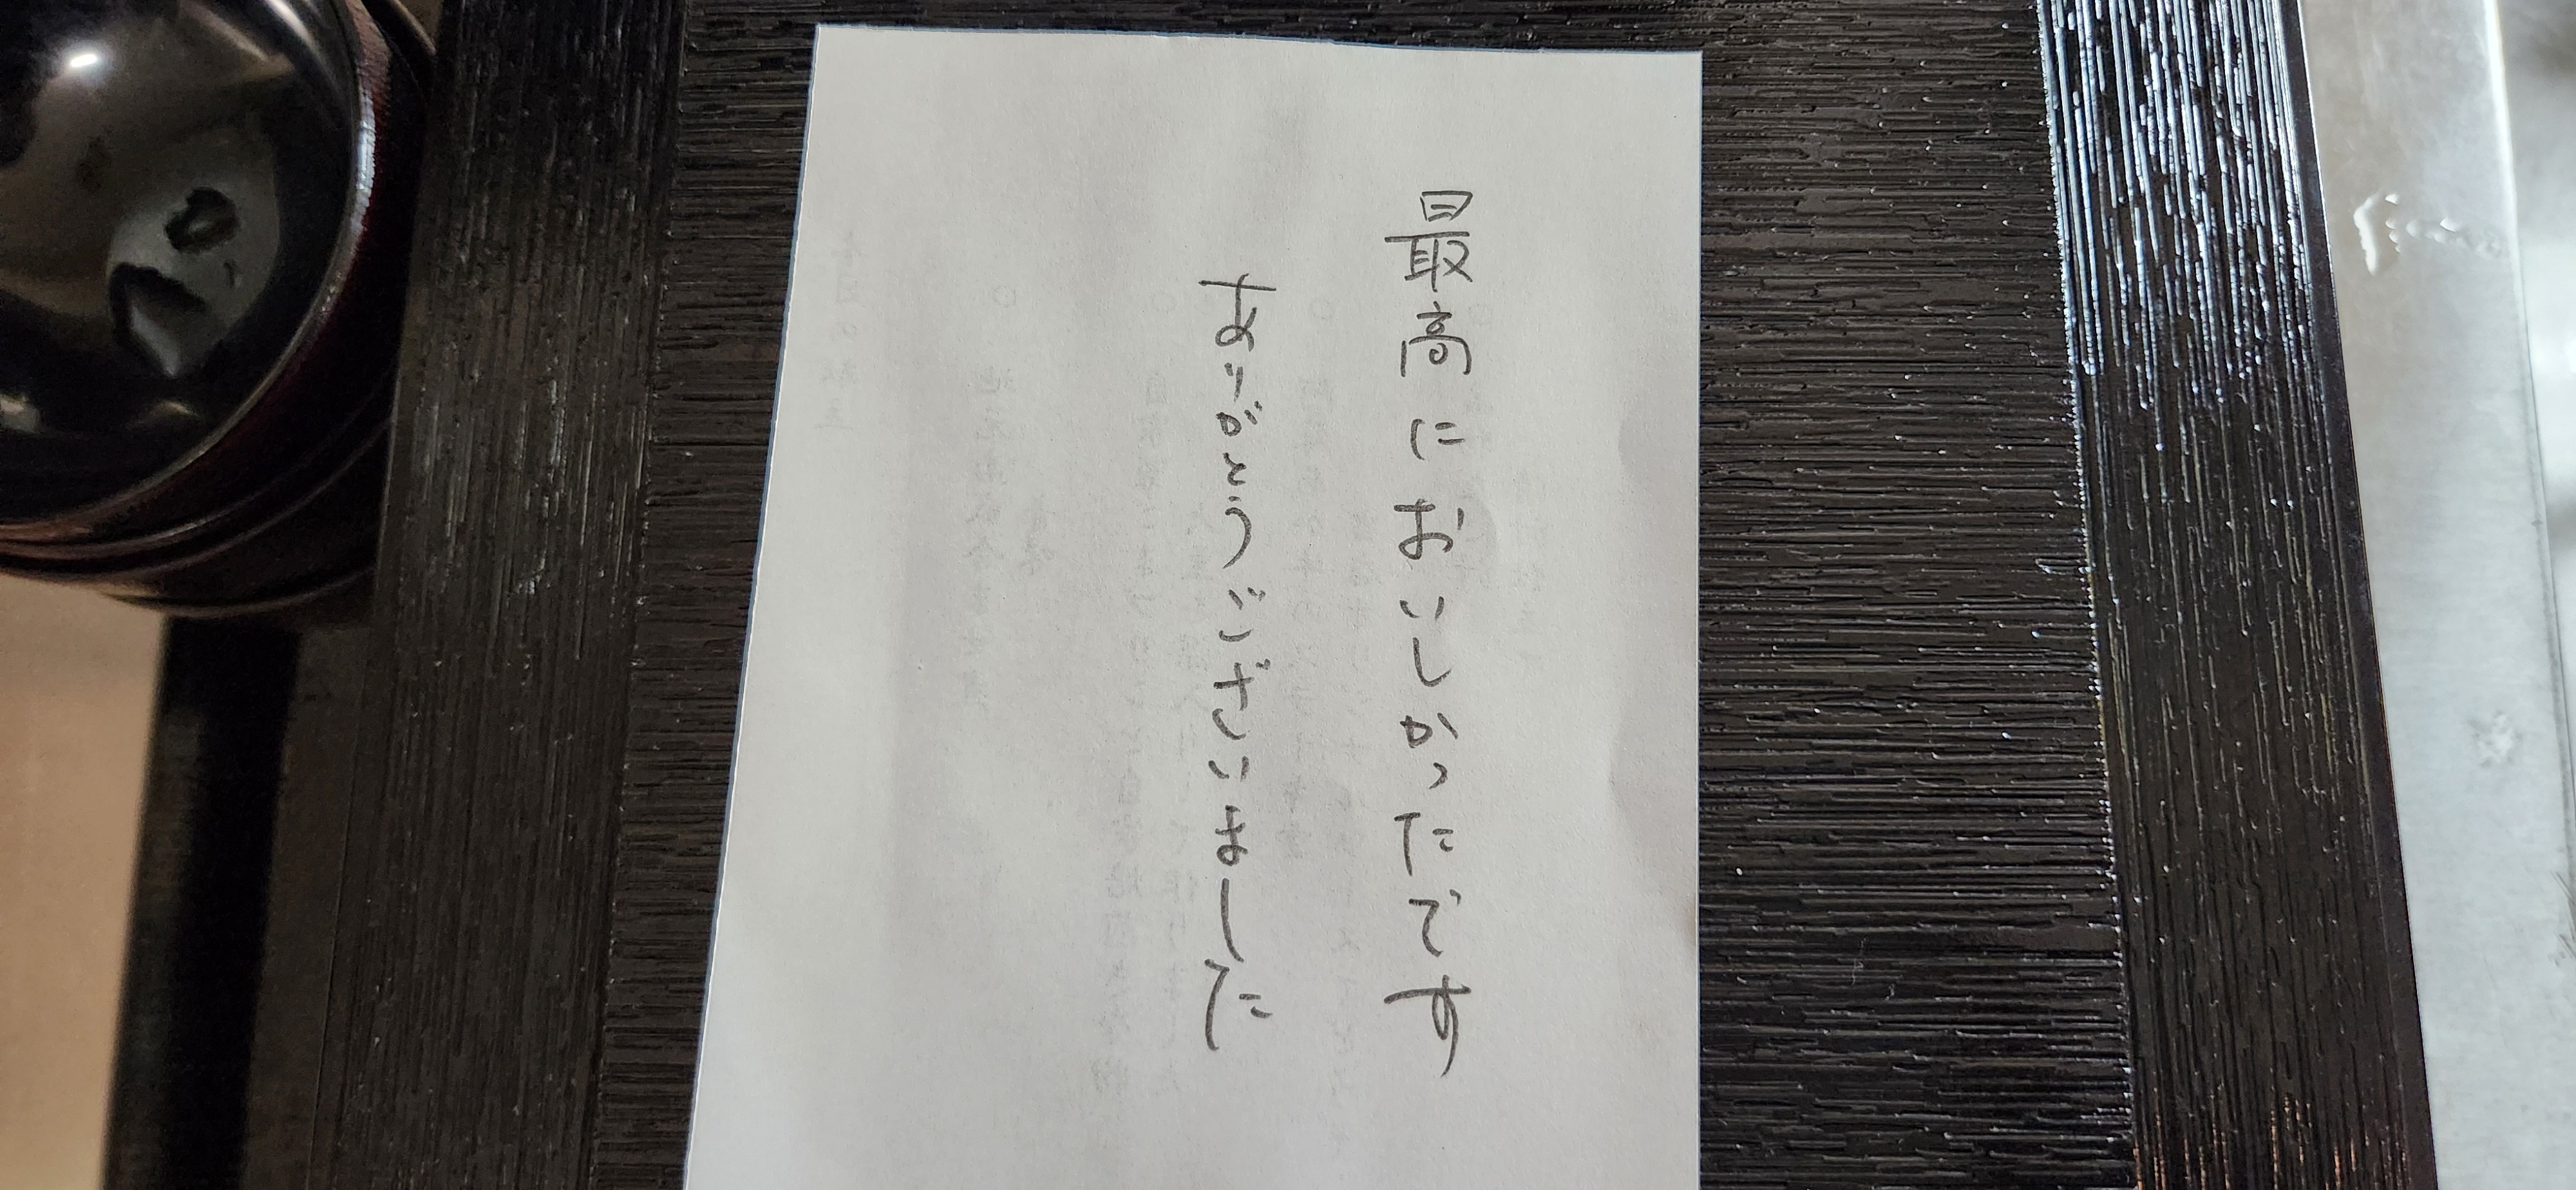 最高においしかったです
ありがとうございました